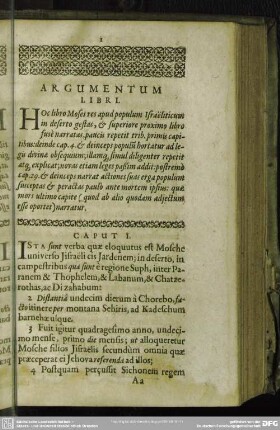 1
ARGUMENTUM
LIBRI.
HOc libro Moses res apud populum Israëliticum
in deserto gestas, & superiore proximo libro
fusè narratas, paucis repetit trib. primis capi-
tibus: deinde cap. 4. & deinceps populũ hortatur ad le-
gu divina obsequium; illamq́; simul diligenter repetit
atq́; explicat; novas etiam leges passim addit: postremò
cap. 29. & deinceps narrat actiones suas erga populum
susceptas & peractas paulò ante mortem ipsius: quæ
mors ultimo capite (quod ab alio quodam adjectum
esse oportet) narratur.
CAPUT I.
ISTA sunt verba quæ eloquutus est Mosche
universo Jisraëli cis Jardenem; in deserto, in
campestribus quæ sunt è regione Suph, inter Pa-
ranem & Thophelem, & Labanum, & Chatze-
rothas, ac Dizahabum:
2 Distantiâ undecim dierum à Chorebo, fa-
cto itinere per montana Sehiris, ad Kadeschum
barnehæ usque.
3 Fuit igitur quadragesimo anno, undeci-
mo mense, primo die mensis; ut alloqueretur
Mosche filios Jisraëlis secundùm omnia quæ
præceperat ei Jehova referenda ad illos;
4 Postquam percussit Sichonem regem
Aa